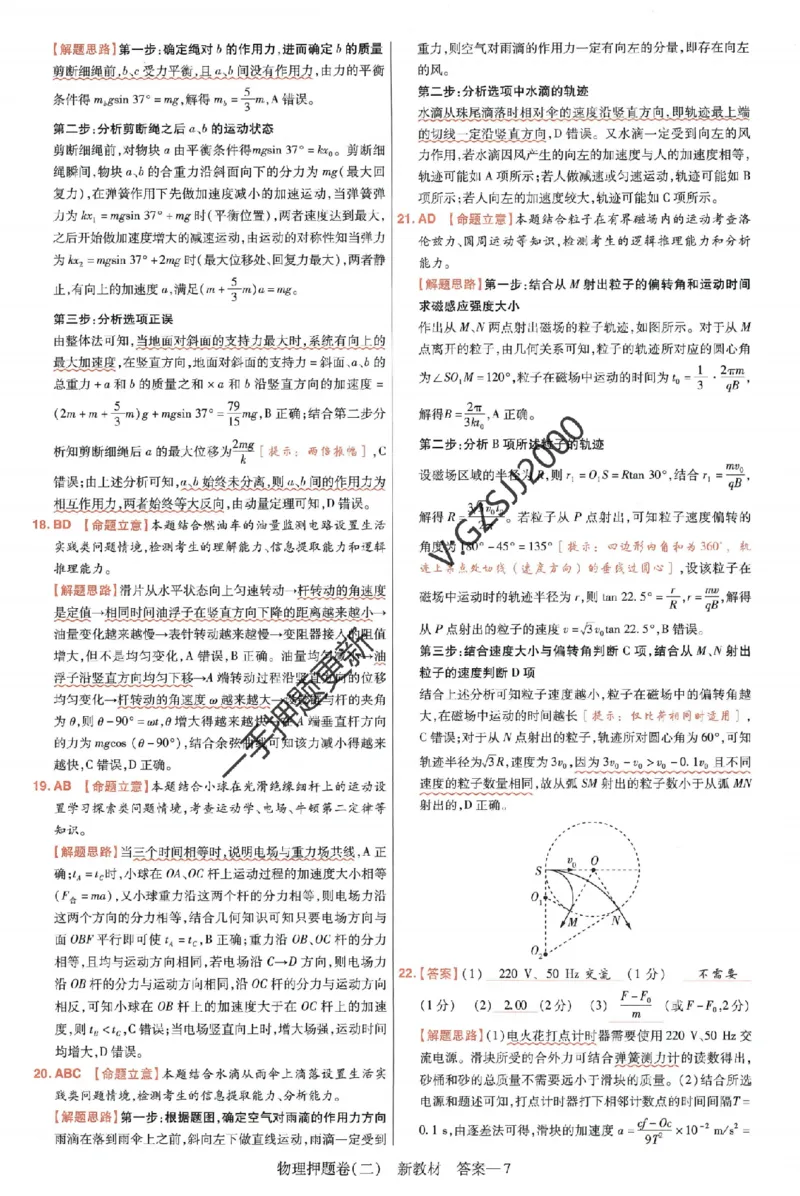 【解题思路】第一步:确定绳对 b 的作用力,进而确定 b 的质量
剪断细绳前,b、c 受力平衡,且 a、b 间没有作用力,由力的平衡
条件得 m_b gsin 37° = mg,解得 m_b = 5/3 m,A 错误。
第二步:分析剪断绳之后 a、b 的运动状态
剪断细绳前,对物块 a 由平衡条件得mgsin 37° = kx₀。剪断细
绳瞬间,物块 a、b 的合重力沿斜面向下的分力为 mg(最大回
复力),在弹簧作用下先做加速度减小的加速运动,当弹簧弹
力为 kx₁ = mgsin 37° + mg 时(平衡位置),两者速度达到最大,
之后开始做加速度增大的减速运动,由运动的对称性知当弹力
为 kx₂ = mgsin 37° +2mg 时(最大位移处、回复力最大),两者静
止,有向上的加速度 a,满足(m + 5/3 m)a = mg。
第三步:分析选项正误
由整体法可知,当地面对斜面的支持力最大时,系统有向上的
最大加速度,在竖直方向,地面对斜面的支持力 = 斜面、a、b 的
总重力 + a 和 b 的质量之和 × a 和 b 沿竖直方向的加速度 =
(2m + m + 5/3 m)g + mgsin 37° = 79/15 mg,B 正确;结合第二步分
析知剪断细绳后 a 的最大位移为 2mg/k [提示:两倍振幅],C
错误;由上述分析可知,a、b 始终未分离,则 a、b 间的作用力为
相互作用力,两者始终等大反向,由动量定理可知,D 错误。
18. BD 【命题立意】本题结合燃油车的油量监测电路设置生活
实践类问题情境,检测考生的理解能力、信息提取能力和逻辑
推理能力。
【解题思路】滑片从水平状态向上匀速转动→杆转动的角速度
是定值→相同时间油浮子在竖直方向下降的距离越来越小→
油量变化越来越慢→表针转动越来越慢→变阻器接入的阻值
增大,但不是均匀变化,A 错误,B 正确。油量均匀减小→油
浮子沿竖直方向均匀下移→A 端转动过程沿竖直方向的位移
均匀变化→杆转动的角速度 ω 越来越大→设竖直与杆的夹角
为 θ,则 θ - 90° = ωt,θ 增大得越来越快,A 端垂直杆方向
的力为 mgcos (θ - 90°),结合余弦曲线可知该力减小得越来
越快,C 错误,D 正确。
19. AB 【命题立意】本题结合小球在光滑绝缘细杆上的运动设
置学习探索类问题情境,考查运动学、电场、牛顿第二定律等
知识。
【解题思路】当三个时间相等时,说明电场与重力场共线,A 正
确;t_A = t_C时,小球在 OA、OC 杆上运动过程的加速度大小相等
(F合 = ma),又小球重力沿这两个杆的分力相等,则电场力沿
这两个方向的分力相等,结合几何知识可知只要电场方向与
面 OBF 平行即可使 t_A = t_C,B 正确;重力沿 OB、OC 杆的分力
相等,且均与运动方向相同,若电场沿 C→D 方向,则电场力
沿 OB 杆的分力与运动方向相同,沿 OC 杆的分力与运动方向
相反,可知小球在 OB 杆上的加速度大于在 OC 杆上的加速
度,则 t_B < t_C,C 错误;当电场竖直向上时,增大场强,运动时间
均增大,D 错误。
20. ABC 【命题立意】本题结合水滴从雨伞上滴落设置生活实
践类问题情境,检测考生的信息提取能力、分析能力。
【解题思路】第一步:根据题图,确定空气对雨滴的作用力方向
雨滴在落到雨伞上之前,斜向左下做直线运动,雨滴一定受到
重力,则空气对雨滴的作用力一定有向左的分量,即存在向左
的风。
第二步:分析选项中水滴的轨迹
水滴从珠尾滴落时相对伞的速度沿竖直方向,即轨迹最上端
的切线一定沿竖直方向,D 错误。又水滴一定受到向左的风
力作用,若水滴因风产生的向左的加速度与人的加速度相等,
轨迹可能如 A 项所示;若人做减速或匀速运动,轨迹可能如 B
项所示;若人向左的加速度较大,轨迹可能如 C 项所示。
21. AD 【命题立意】本题结合粒子在有界磁场内的运动考查洛
伦兹力、圆周运动等知识,检测考生的逻辑推理能力和分析
能力。
【解题思路】第一步:结合从 M 射出粒子的偏转角和运动时间
求磁感应强度大小
作出从 M、N 两点射出磁场的粒子轨迹,如图所示。对于从 M
点离开的粒子,由几何关系可知,粒子的轨迹所对应的圆心角
为∠SO₁M = 120°,粒子在磁场中运动的时间为 t₀ = 1/3 · 2πm/qB,
解得B = 2π/3kt₀,A 正确。
第二步:分析 B 项所述粒子的轨迹
设磁场区域的半径为 R,则 r₁ = O₁S = Rtan 30°,结合 r₁ = mv₀/qB,
解得 R = 。若粒子从 P 点射出,可知粒子速度偏转的
角度为 180° - 45° = 135° [提示:四边形内角和为 360°,轨
迹上某点处切线(速度方向)的垂线过圆心],设该粒子在
磁场中运动时的轨迹半径为 r,则 tan 22.5° = r/R,r = mv/qB,解得
从 P 点射出的粒子的速度 v = √3v₀tan 22.5°,B 错误。
第三步:结合速度大小与偏转角判断 C 项,结合从 M、N 射出
粒子的速度判断 D 项
结合上述分析可知粒子速度越小,粒子在磁场中的偏转角越
大,在磁场中运动的时间越长 [提示:仅比荷相同时适用],
C 错误;对于从 N 点射出的粒子,轨迹所对圆心角为 60°,可知
轨迹半径为√3R,速度为 3v₀,因为 3v₀ - v₀ > v₀ - 0.1v₀ 且不同
速度的粒子数量相同,故从弧 SM 射出的粒子数小于从弧 MN
射出的,D 正确。
S v₀ O
O₁
M N
O₂
22.【答案】(1) 220 V、50 Hz 交流 (1 分) 不需要
(1 分) (2) 2.00 (2 分) (3) F - F₀/m (或 F - F₀,2分)
【解题思路】(1)电火花打点计时器需要使用 220 V、50 Hz 交
流电源。滑块所受的合外力可结合弹簧测力计的读数得出,
砂桶和砂的总质量不需要远小于滑块的质量。(2)结合所选
电源和题述可知,打点计时器打下相邻计数点的时间间隔T =
0.1 s,由逐差法可得,滑块的加速度 a = cf - Oc/9T² × 10⁻² m/s² =
一手押题更新
V:GZSJJ2000
物理押题卷(二) 新教材 答案—7